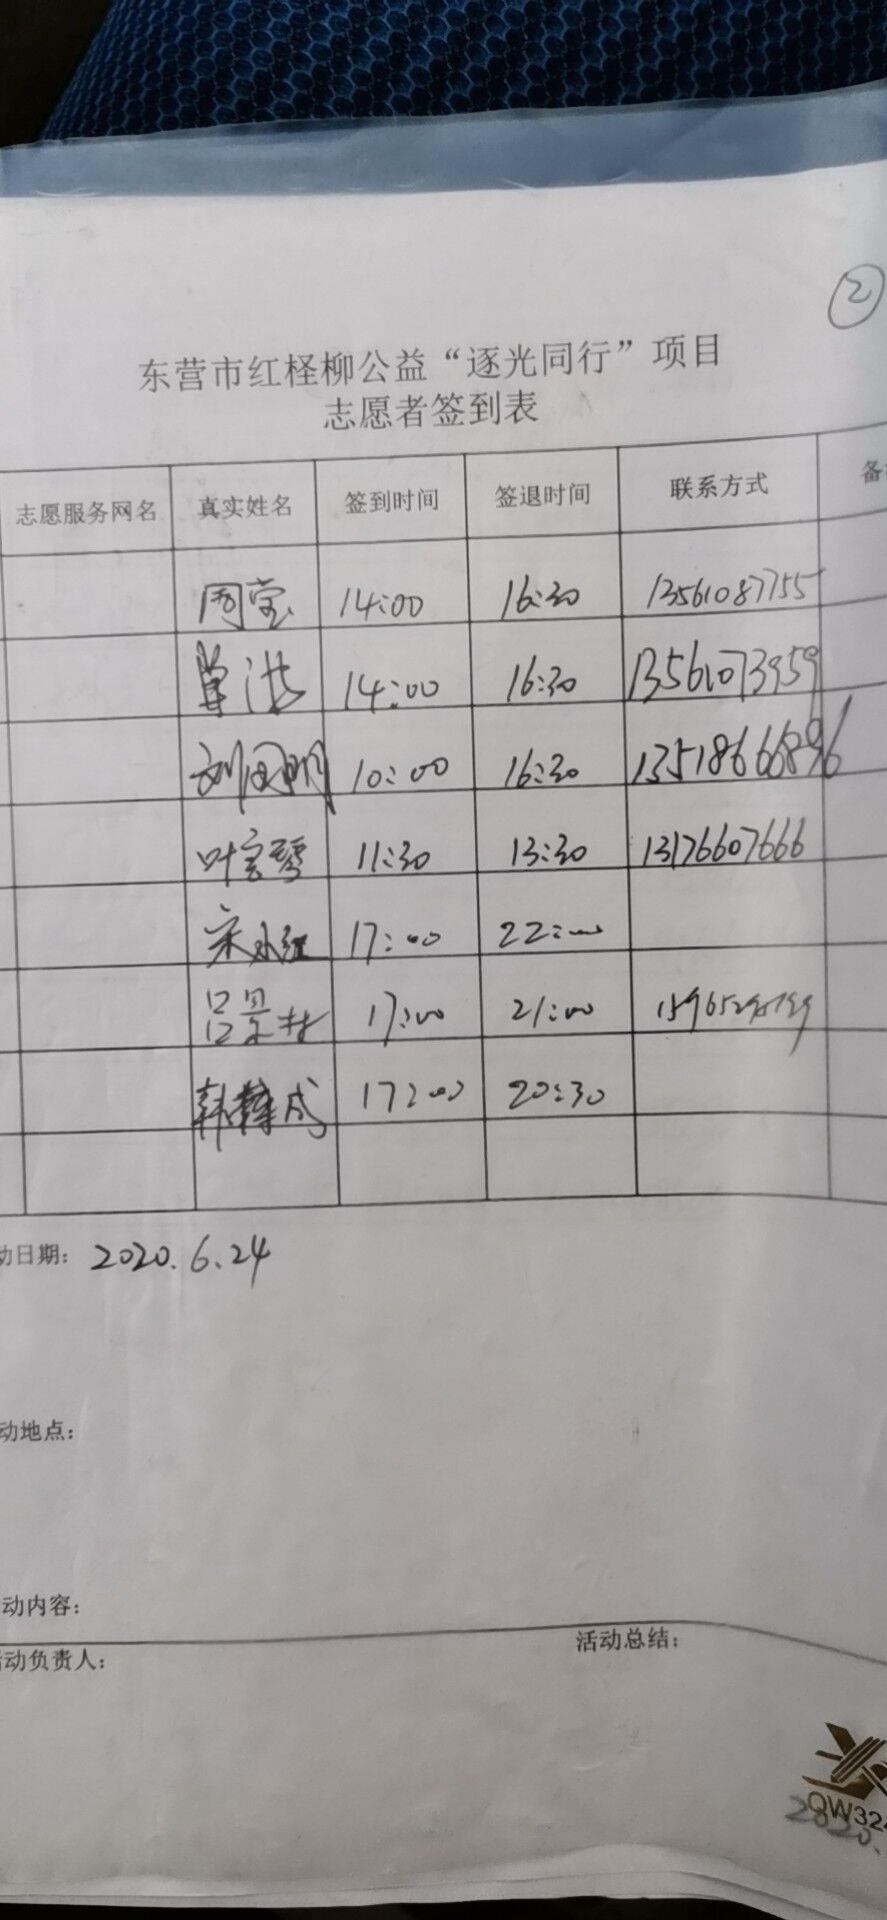 ②
东营市红柽柳公益“逐光同行”项目
志愿者签到表
志愿服务网名 真实姓名 签到时间 签退时间 联系方式 备
周莹 14:00 16:30 13561087755
单洪 14:00 16:30 13561073959
刘国明 10:00 16:30 13518666896
叶宝琴 11:30 13:30 13176607666
宋小红 17:00 22:00
吕景村 17:00 21:00
韩 成 17:00 20:30
动日期: 2020.6.24
动地点:
动内容:
活动总结:
动负责人:
QW324